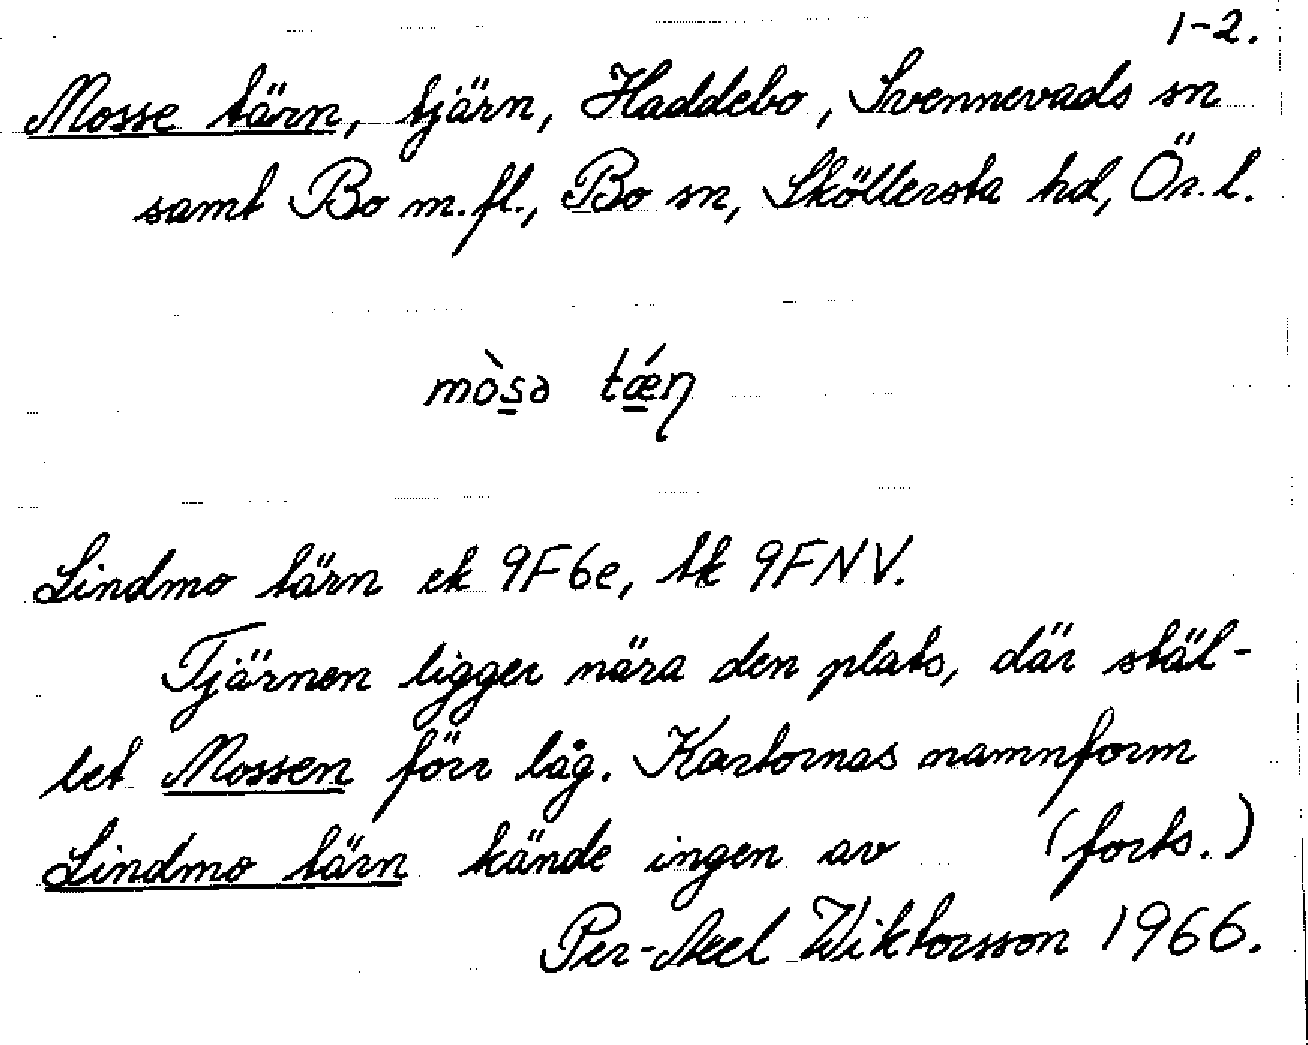 1-2.
Mosse tärn, tjärn, Haddebo, Svennevads sn
samt Bo m.fl., Bo sn, Sköllersta hd, Ör. l.
mòsə tǽɳ
Lindmo tärn ek 9F6e, tk 9FNV.
Tjärnen ligger nära den plats, där stäl-
let Mossen förr låg. Kartornas namnform
Lindmo tärn kände ingen av (forts.)
Per-Axel Wiktorsson 1966.